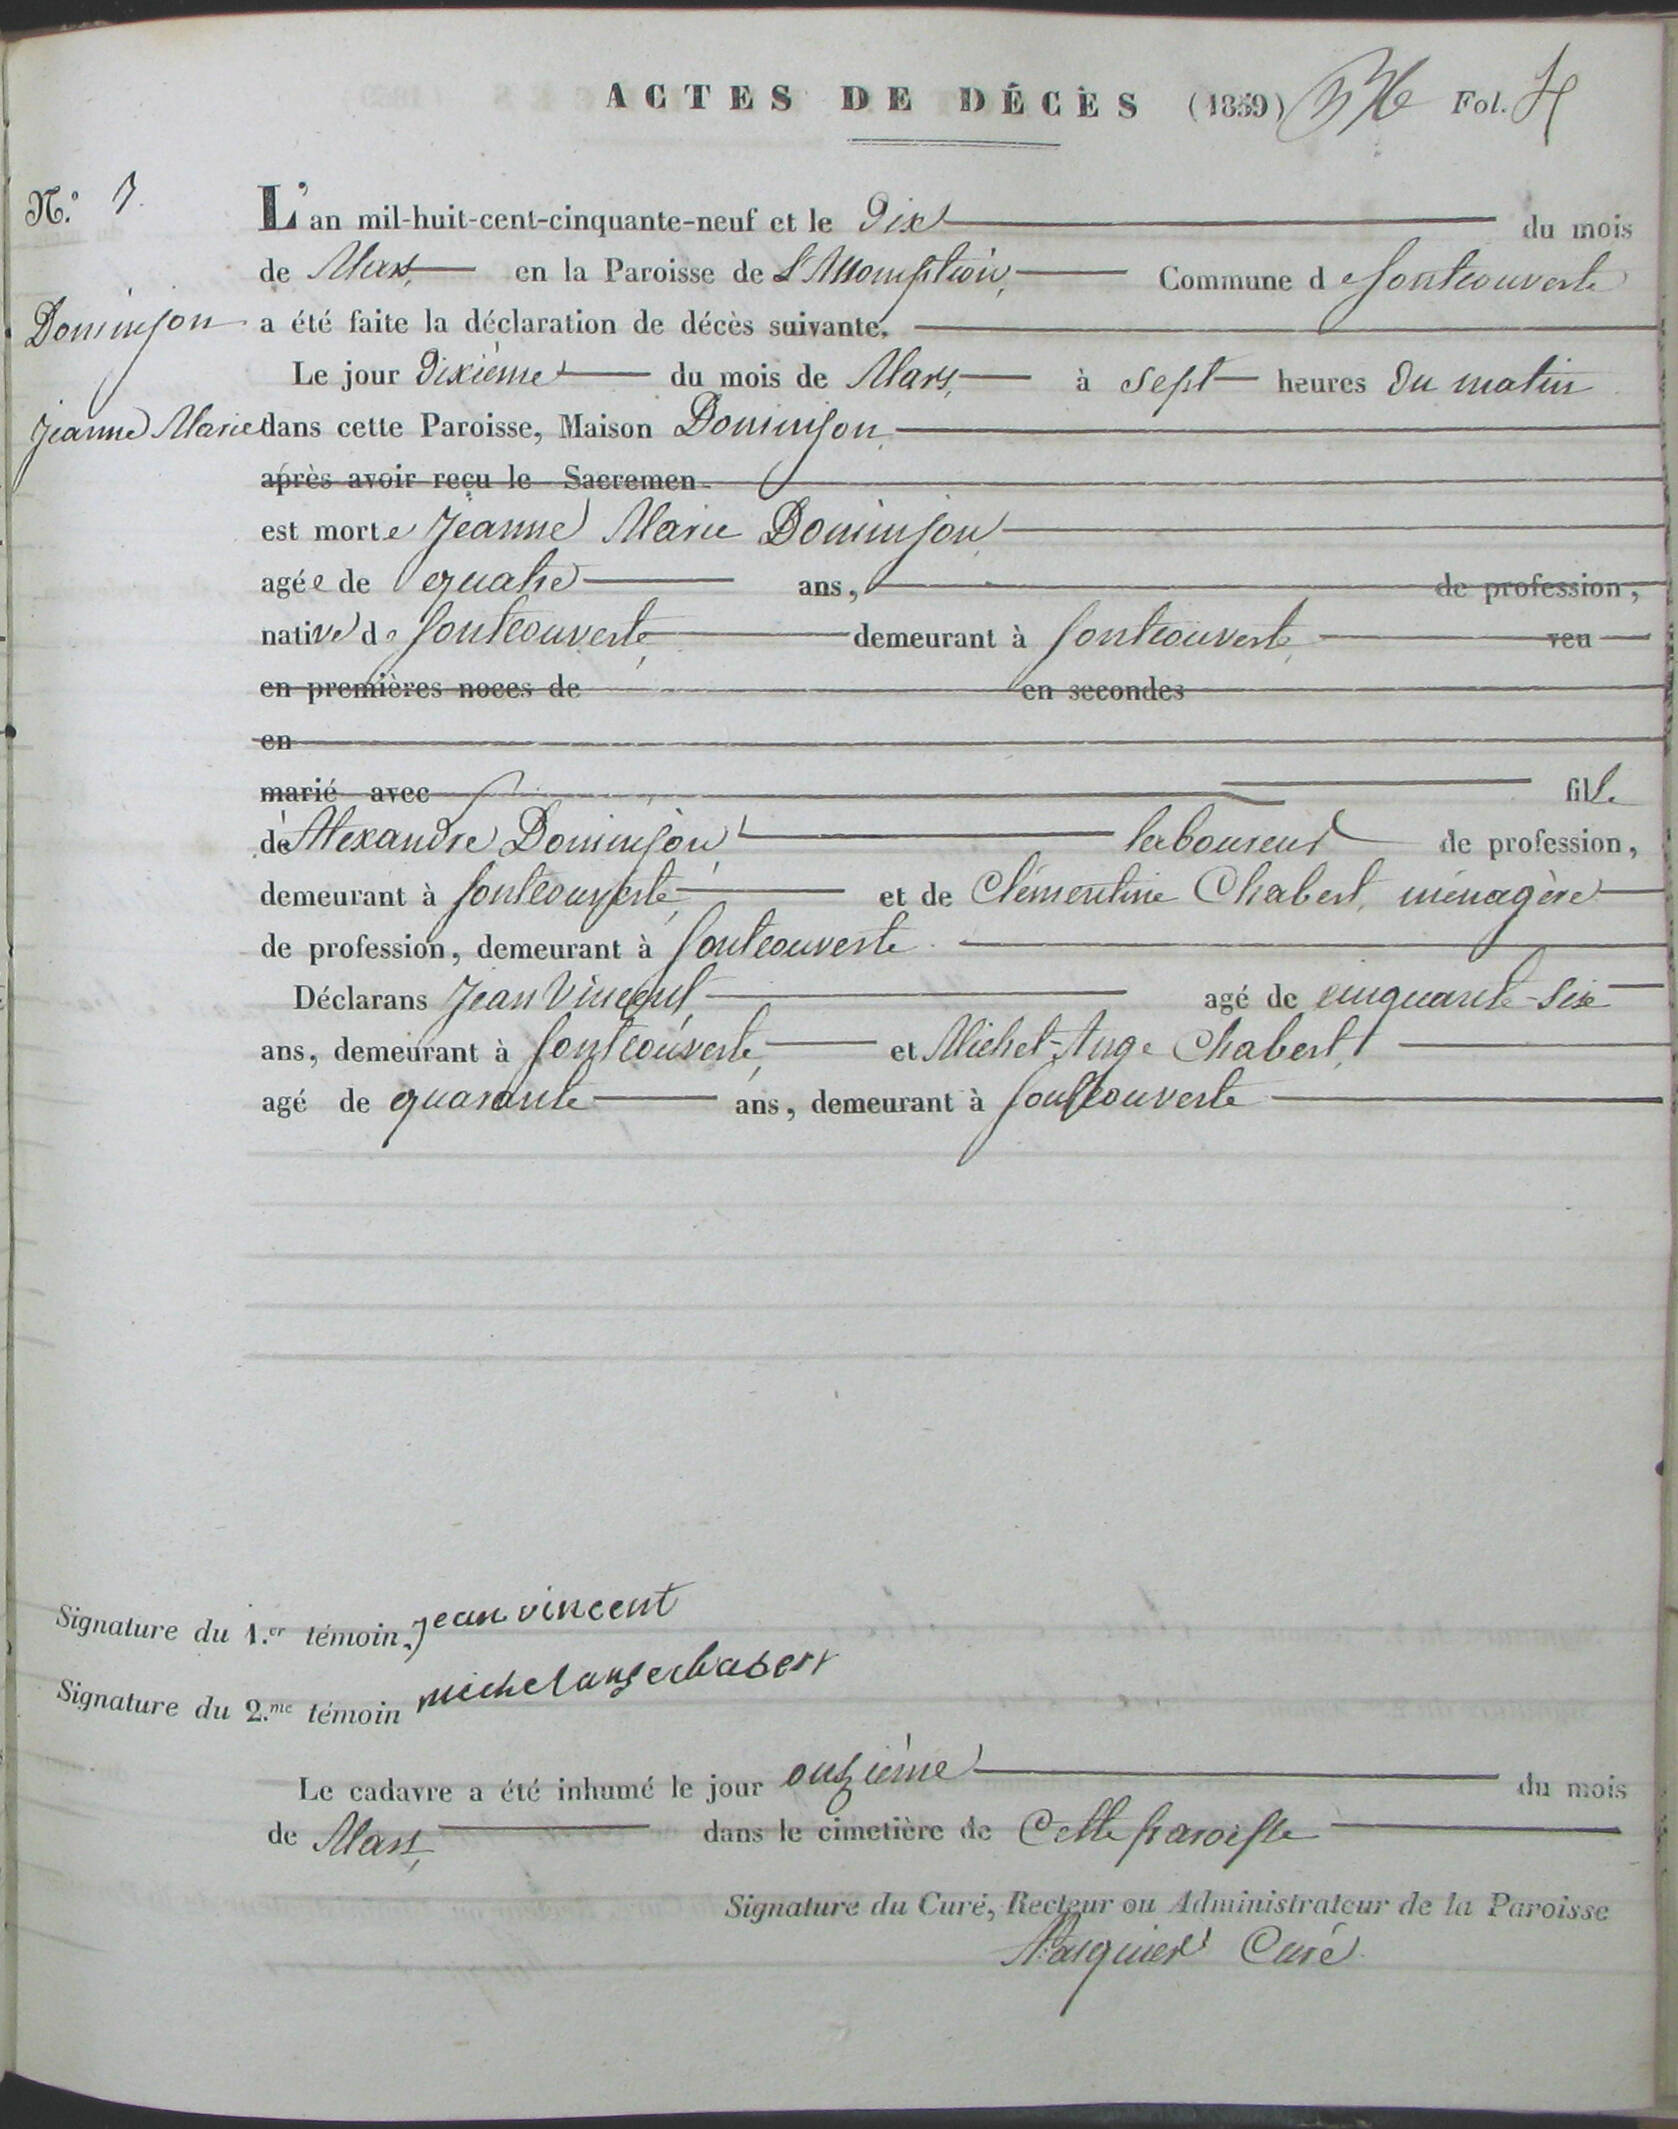 ACTES DE DÉCÈS (1859) Fol. 4
N.º 7.
L'an mil-huit-cent-cinquante-neuf et le Dix du mois
de Mars, en la Paroisse de L'Assomption, Commune de fontcouverte
Dominjon a été faite la déclaration de décès suivante.
Le jour Dixième du mois de Mars, à sept heures du matin
Jeanne Marie dans cette Paroisse, Maison Dominjon,
après avoir reçu le Sacremen
est morte Jeanne Marie Dominjon,
agée de quatre ans, de profession,
native de fontcouverte, demeurant à fontcouverte, veu
en premières noces de en secondes
en
marié avec fille
de Alexandre Dominjon, laboureur de profession,
demeurant à fontcouverte, et de Clémentine Chabert, ménagère
de profession, demeurant à fontcouverte.
Déclarans Jean Vincent, agé de cinquante-six
ans, demeurant à fontcouverte, et Michel-Ange Chabert,
agé de quarante ans, demeurant à fontcouverte
Signature du 1.er témoin, jean vincent
Signature du 2.me témoin michel ange chabert
Le cadavre a été inhumé le jour onzième du mois
de Mars, dans le cimetière de Cette paroisse
Signature du Curé, Recteur ou Administrateur de la Paroisse
Pasquier Curé.